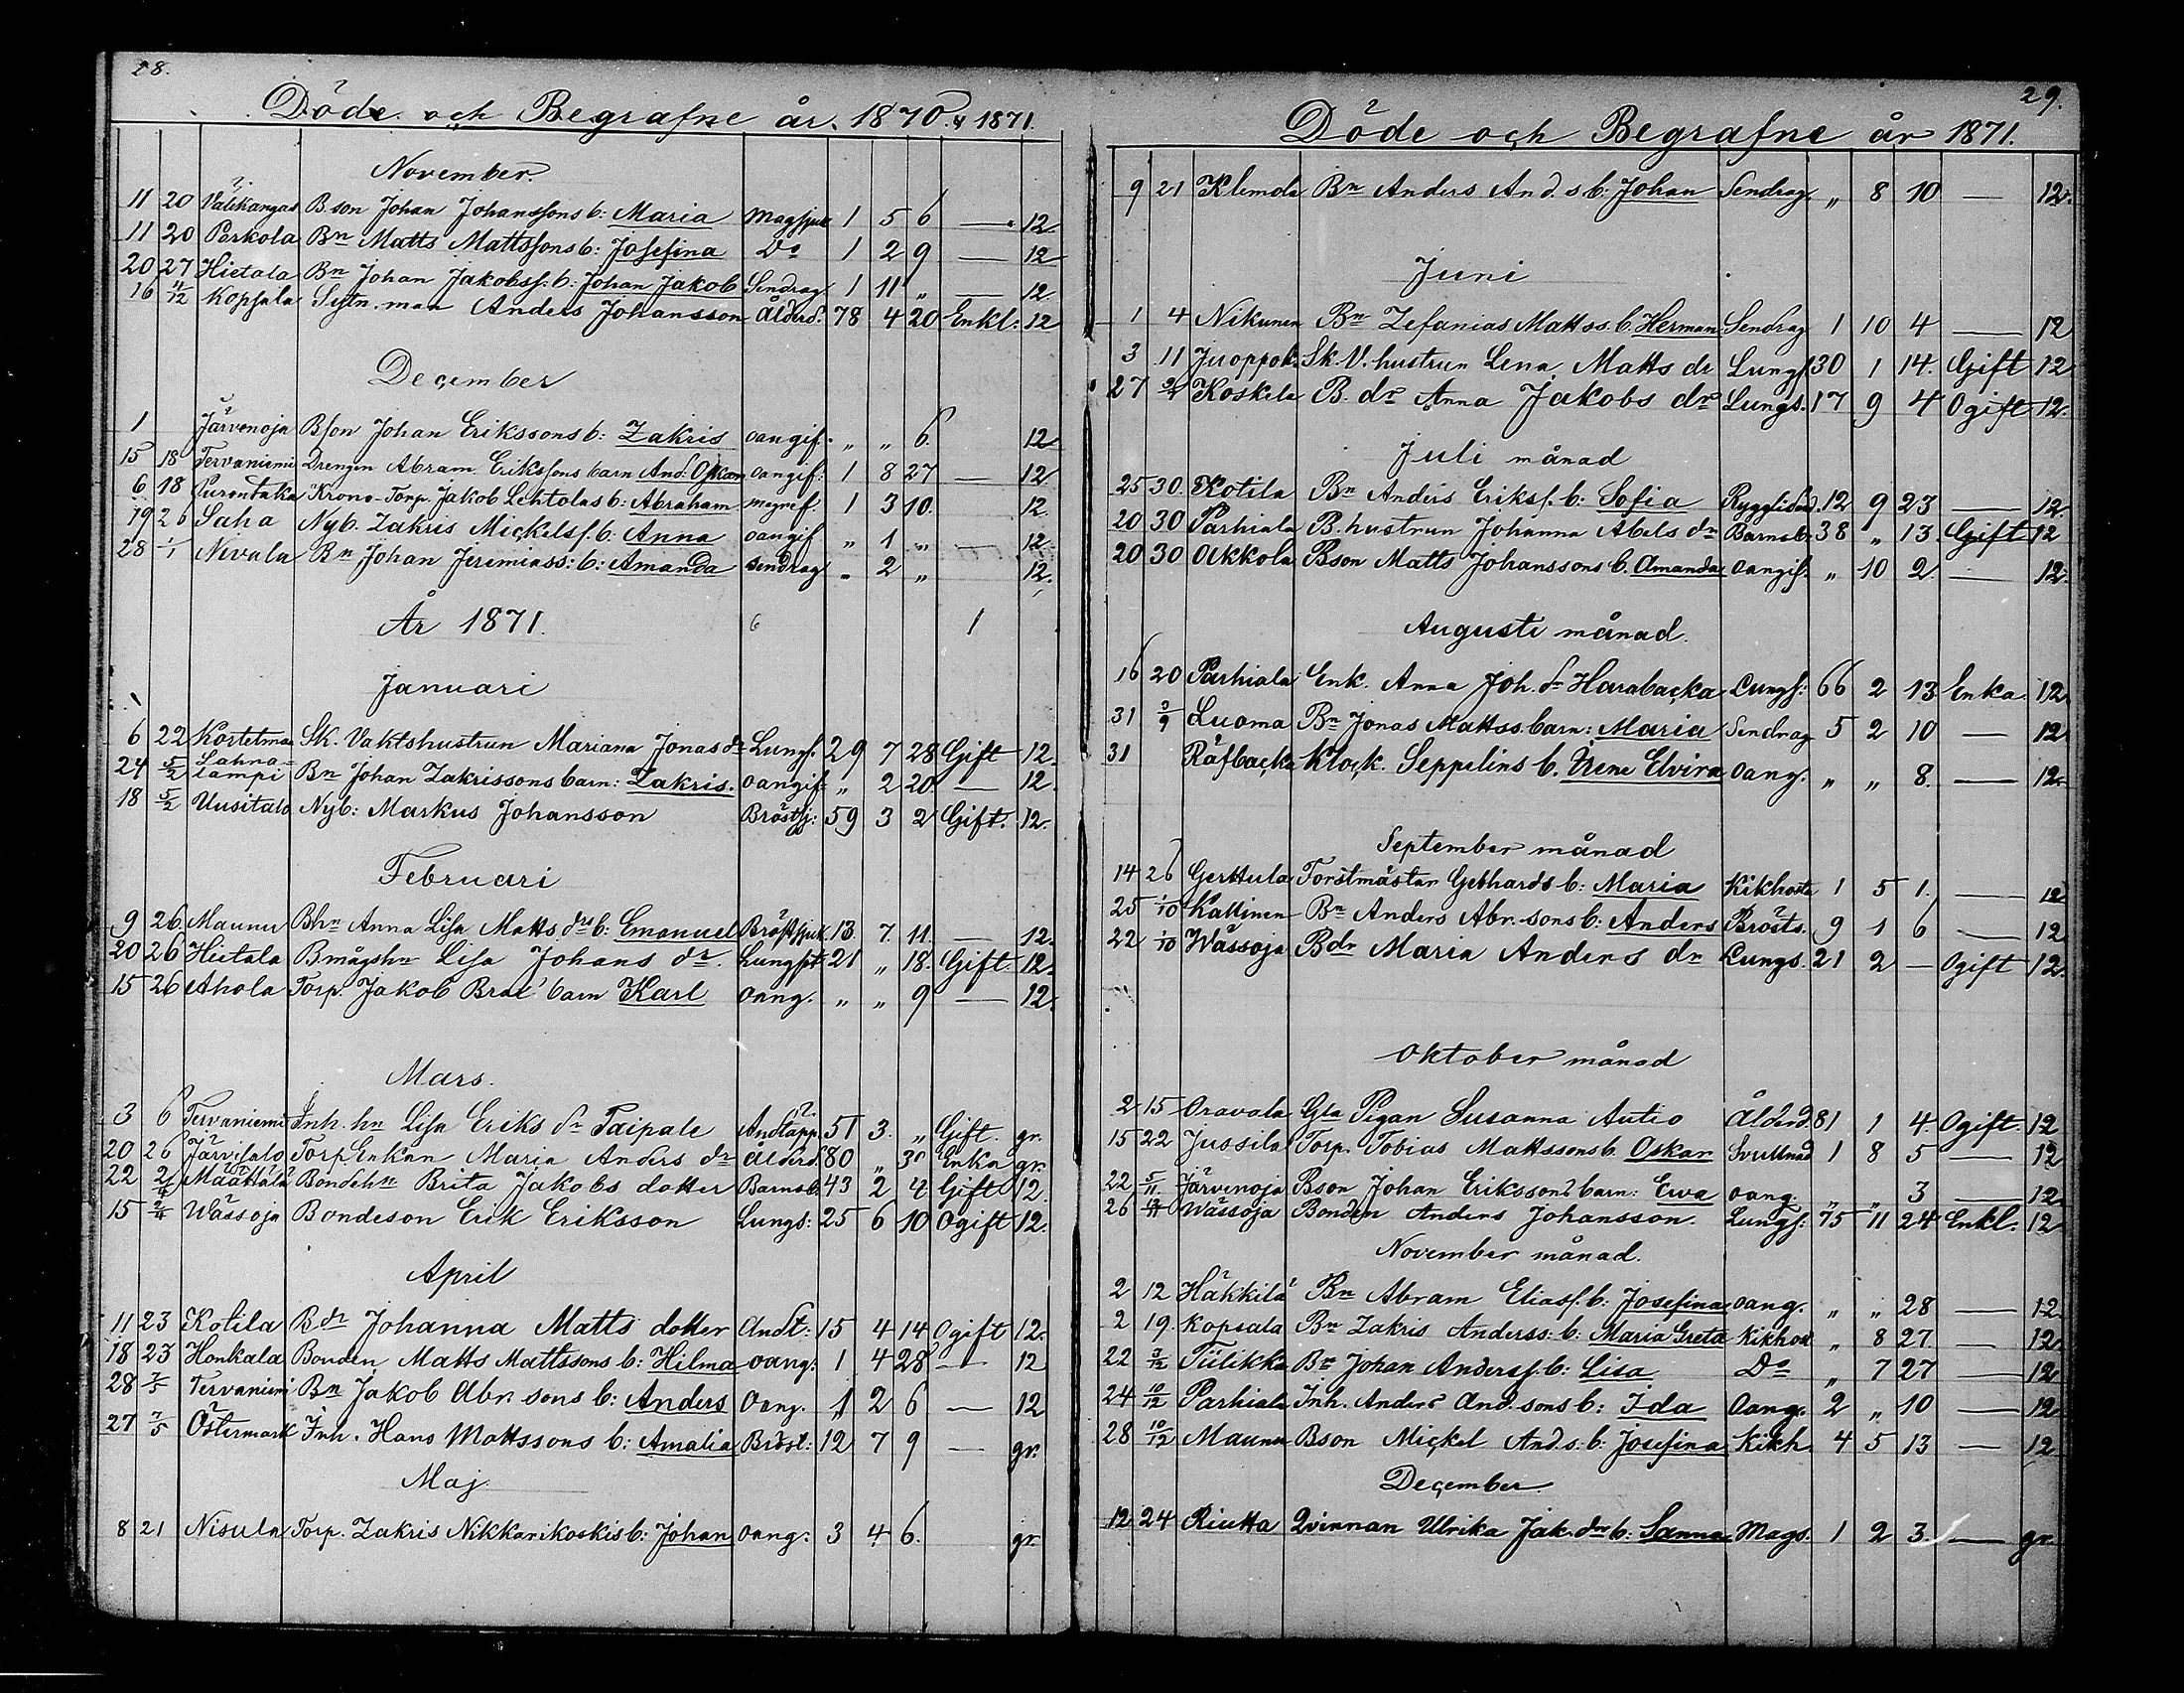 28.
Döde och Begrafne år 1870 & 1871.
November.
11 20 Välikangas B.son Johan Johanssons b: Maria Magsjuk 1 5 6 — 12
11 20 Perkola Bn Matts Mattssons b: Josefina Do 1 2 9 — 12
20 27 Hietala Bn Johan Jakobss: b: Johan Jakob Sendrag 1 11 „ — 12.
16 4/12 Kopsala Sytn. man Anders Johansson Ålderd. 78 4 20 Enkl: 12
December
1 Järvenoja Bson Johan Erikssons b: Zakris oangif. „ „ 6. 12
15 18 Tervaniemi Drengen Abram Erikssons barn And: Oskar oangif: 1 8 27 — 12
6 18 Purontaka Krono-Torp. Jakob Lehtolas b: Abraham 1 3 10. 12
19 26 Saha Nyb. Zakris Mickelss. b: Anna oangif „ 1 „ — 12.
28 1/1 Nivala Bn Johan Jeremiass: b: Amanda sendrag „ 2 „ 12.
År 1871. 6 1
Januari
6 22 Kortetmaa Sk. Vaktshustrun Mariana Jonas dr Lungs. 29 7 28 Gift 12.
24 5/2 Lahna-lampi Bn Johan Zakrissons barn: Zakris. oangif: „ 2 20 — 12.
18 5/2 Uusitalo Nyb: Markus Johansson Bröstsj: 59 3 2 Gift. 12.
Februari
9 26. Maunu Bhn Anna Lisa Matts drs b: Emanuel Bröstsjuk. 13. 7. 11. — 12.
20 26 Hietala Bmågshn Lisa Johans dr. Lungsot 21 „ 18. Gift. 12.
15 26 Ahola Torp. Jakob Bræ' barn Karl oang. „ „ 9 — 12.
Mars.
3 6 Tervaniemi Inh. hn Lisa Eriks dr Taipale Andtäpp. 51 3. „ Gift. gr.
20 26 Järvisalo Torp. Enkan Maria Anders dr Ålderd. 80 „ 30 Enka gr.
22 2/4 Määttälä Bondehn Brita Jakobs dotter Barnsb. 43 2 4 Gift 12.
15 2/4 Wässoja Bondeson Erik Eriksson Lungs: 25 6 10 Ogift 12.
April
11 23 Kotila Bdr Johanna Matts dotter Andt: 15 4 14 Ogift 12.
18 23 Honkala Bonden Matts Mattssons b: Hilma oang: 1 4 28 — 12
28 7/5 Tervaniemi Bn Jakob Abr. sons b: Anders Oang. 1 2 6 — 12
27 7/5 Östermark Inh. Hans Mattssons b: Amalia Bröst: 12 7 9 — gr.
Maj
8 21 Nisula Torp. Zakris Nikkarikoskis b: Johan oang: 3 4 6. gr.
29.
Döde och Begrafne år 1871.
9 21 Klemola Bn Anders And. s b: Johan Sendrag. „ 8 10 — 12.
Juni
1 4 Nikunen Bn Zefanias Mattss. b. Herman Sendrag 1 10 4 — 12
3 11 Juoppok. Sk. V. hustrun Lena Matts dr Lungs 30 1 14. Gift 12
27 2/7 Koskela B. dr Anna Jakobs dr Lungs. 17 9 4 Ogift 12.
Juli månad
25 30. Kotila Bn Anders Erikss. b: Sofia Ryggelidand. 12 9 23 — 12.
20 30 Parhiala B. hustrun Johanna Abels dr Barnsb. 38 „ 13. Gift 12
20 30 Akkola Bson Matts Johanssons b. Amanda oangif. „ 10 2. — 12.
Augusti månad.
16 20 Parhiala Enk. Anna Joh. dr Harabacka Lungs: 66 2 13 Enka. 12
31 3/9 Luoma Bn Jonas Mattss. barn: Maria Sendrag 5 2 10 — 12
31 Räfbacka Klock. Seppelins b. Irene Elvira oang: „ „ 8. — 12.
September månad
14 26 Gerttula Forstmästar Gebhards b: Maria Kikhosta 1 5 1. — 12
25 /10 Källinen Bn Anders Abr. sons b: Anders Brösts. 9 1 6 — 12
22 /10 Wässoja Bdr Maria Anders dr Lungs. 21 2 — Ogift 12.
Oktober månad
2 15 Oravala Gla Pigan Susanna Autio Ålderd. 81 1 4 Ogift. 12
15 22 Jussila Torp. Tobias Mattssons b. Oskar Svullnad 1 8 5 — 12
22 5/11. Järvenoja Bson Johan Erikssons barn: Ewa oang: „ „ 3 — 12.
26 12/11 Wässoja Bonden Anders Johansson. Lungs: 75 11 24 Enkl. 12
November månad.
2 12 Häkkilä Bn Abram Eliass. b: Josefina oang. „ „ 28 — 12
2 19. Kopsala Bn Zakris Anderss: b: Maria Greta Kikhost „ 8 27. — 12
22 3/12 Tiilikka Bn Johan Anderss. b: Lisa Do „ 7 27 — 12
24 10/12 Parhiala Inh. Anders And. sons b: Ida Oang. 2 „ 10 — 12
28 10/12 Maunu Bson Mickel And. s. b: Josefina Kikh. 4 5 13 — 12
December
12 24 Riutta Qvinnan Ulrika Jak. drs b: Sanna Mags. 1 2 3. — gr.